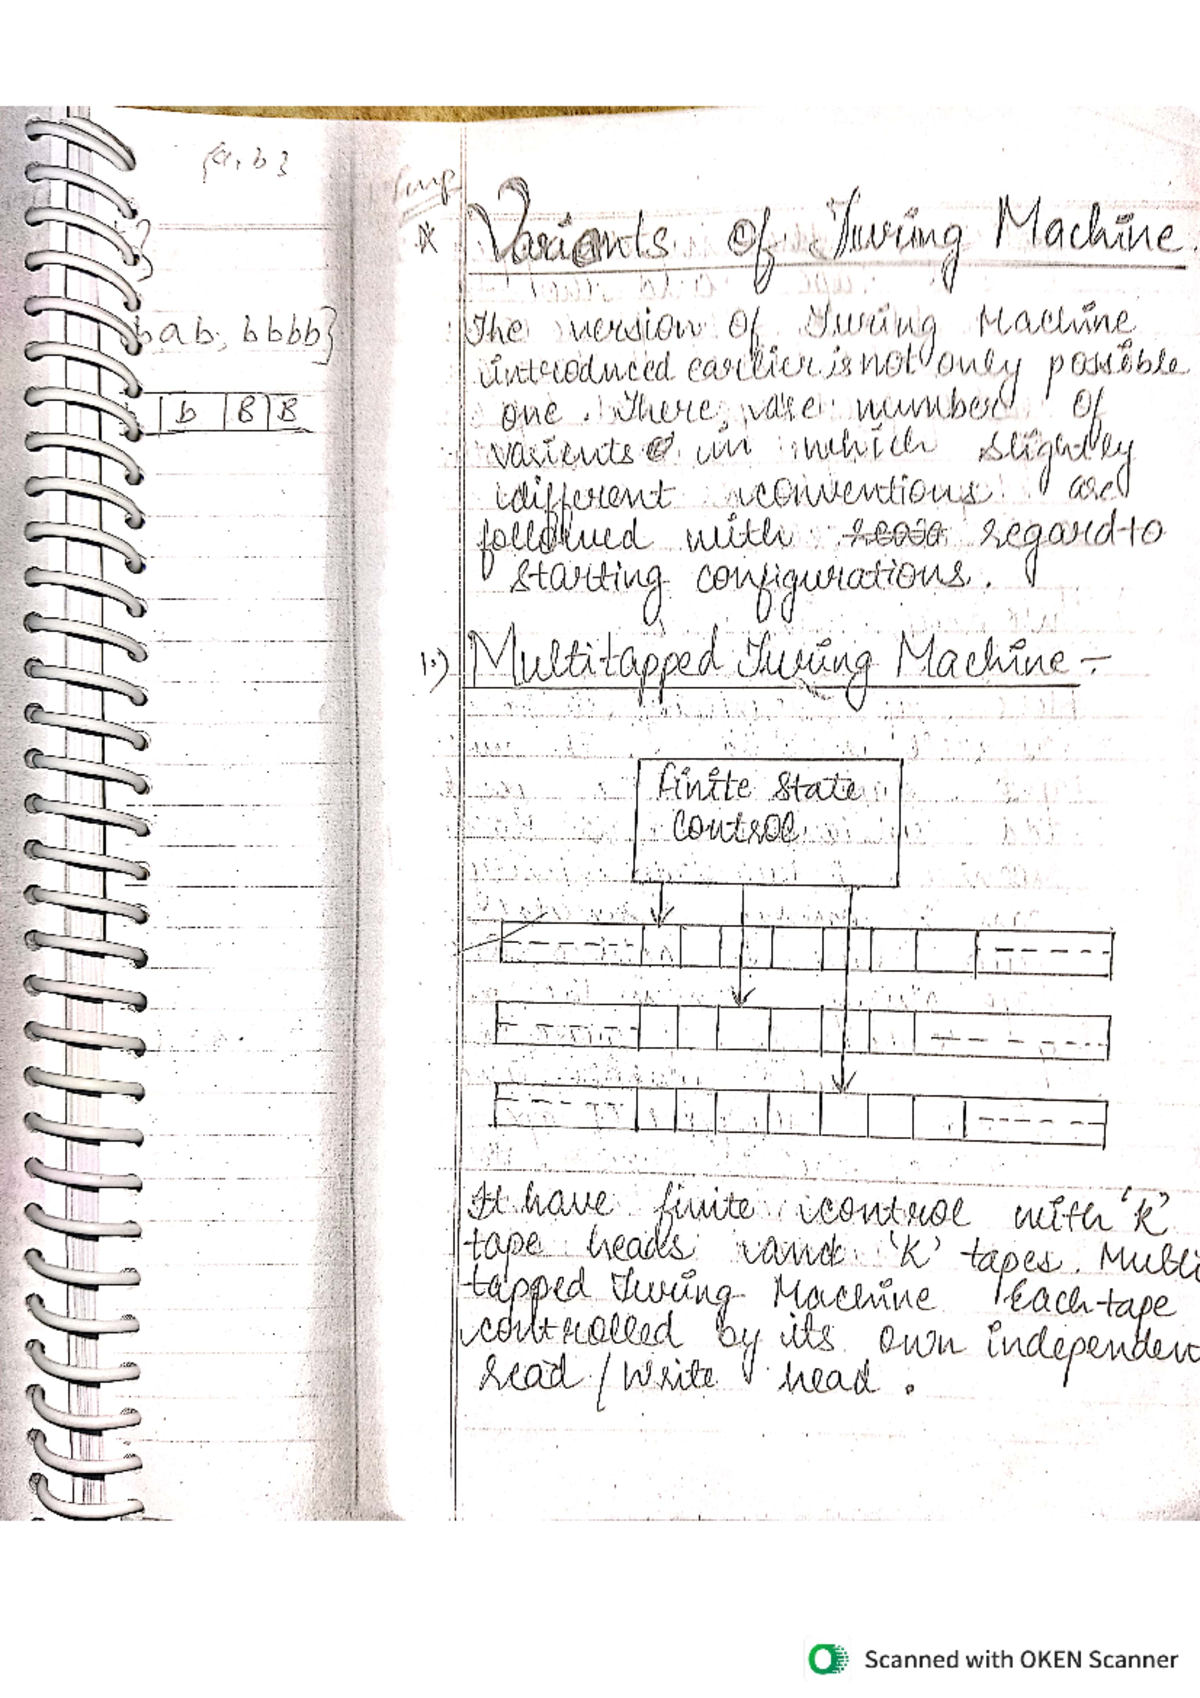 {a, b}
bab, bbbb}
b B B
Imp
Variants Of Turing Machine.
The version Of Turing Machine
introduced earlier is not only possible
one. There are number Of
varients in which slightly
different conventions are
followed with regard to
starting configurations.
1.) Multitapped Turing Machine :-
finite state
control
It have finite control with 'k'
tape heads and 'K' tapes. Multi
tapped Turing Machine Each tape
controlled by its own independent
read / Write head.
Scanned with OKEN Scanner